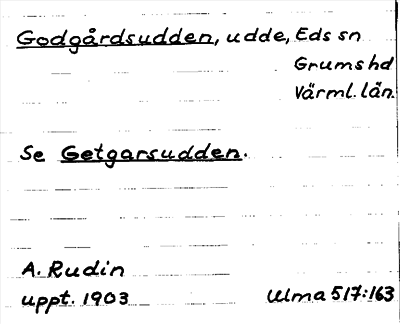 Godgårdsudden, udde, Eds sn
Grums hd
Värml. län.
Se Getgarsudden.
A. Rudin
uppt. 1903
Ulma 517:163